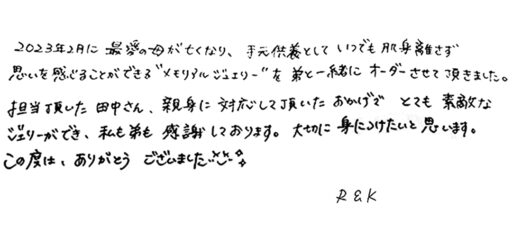 2023年2月に 最愛の母が亡くなり、手元供養として いつでも 肌身離さず
思いを感じることができる"メモリアルジュエリー"を 弟と一緒に オーダーさせて頂きました。
担当頂いた 田中さん、親身に 対応して頂いた おかげで とても 素敵な
ジュエリーができ、私も弟も 感謝しております。大切に 身につけたいと 思います。
この度は、ありがとう ございました
R & K